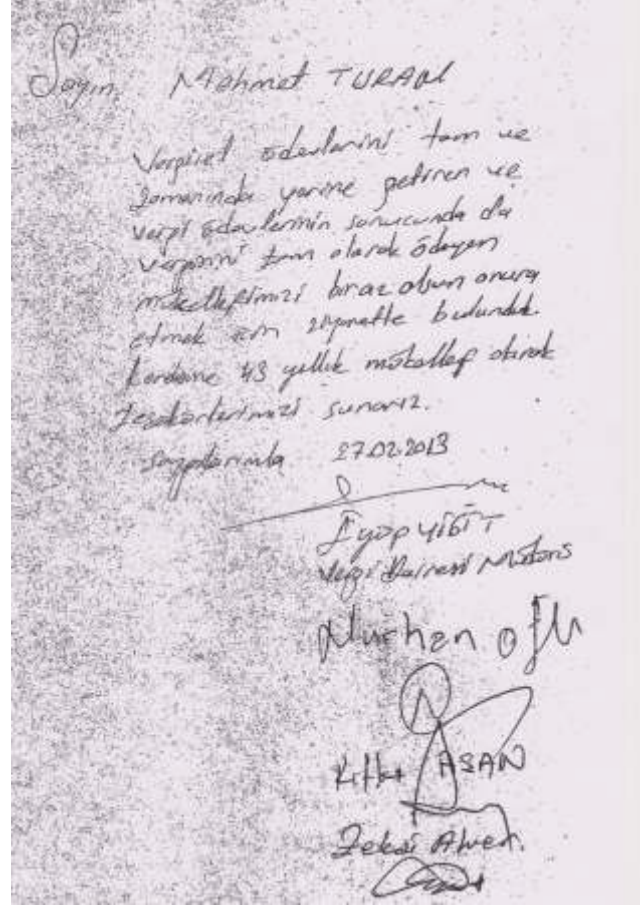 Sayın, Mehmet TURAN
Vergisel ödevlerini tam ve
zamanında yerine getiren ve
vergi ödevlerinin sonucunda da
vergisini tam olarak ödeyen
mükellefimizi biraz olsun onure
etmek için ziyarette bulunduk.
kendisine 43 yıllık mükellef olarak
teşekkürlerimizi sunarız.
saygılarımla 27.02.2013
Eyüp YİĞİT
Vergi Dairesi Müdürü
Nurhan
ASAN
Zekai